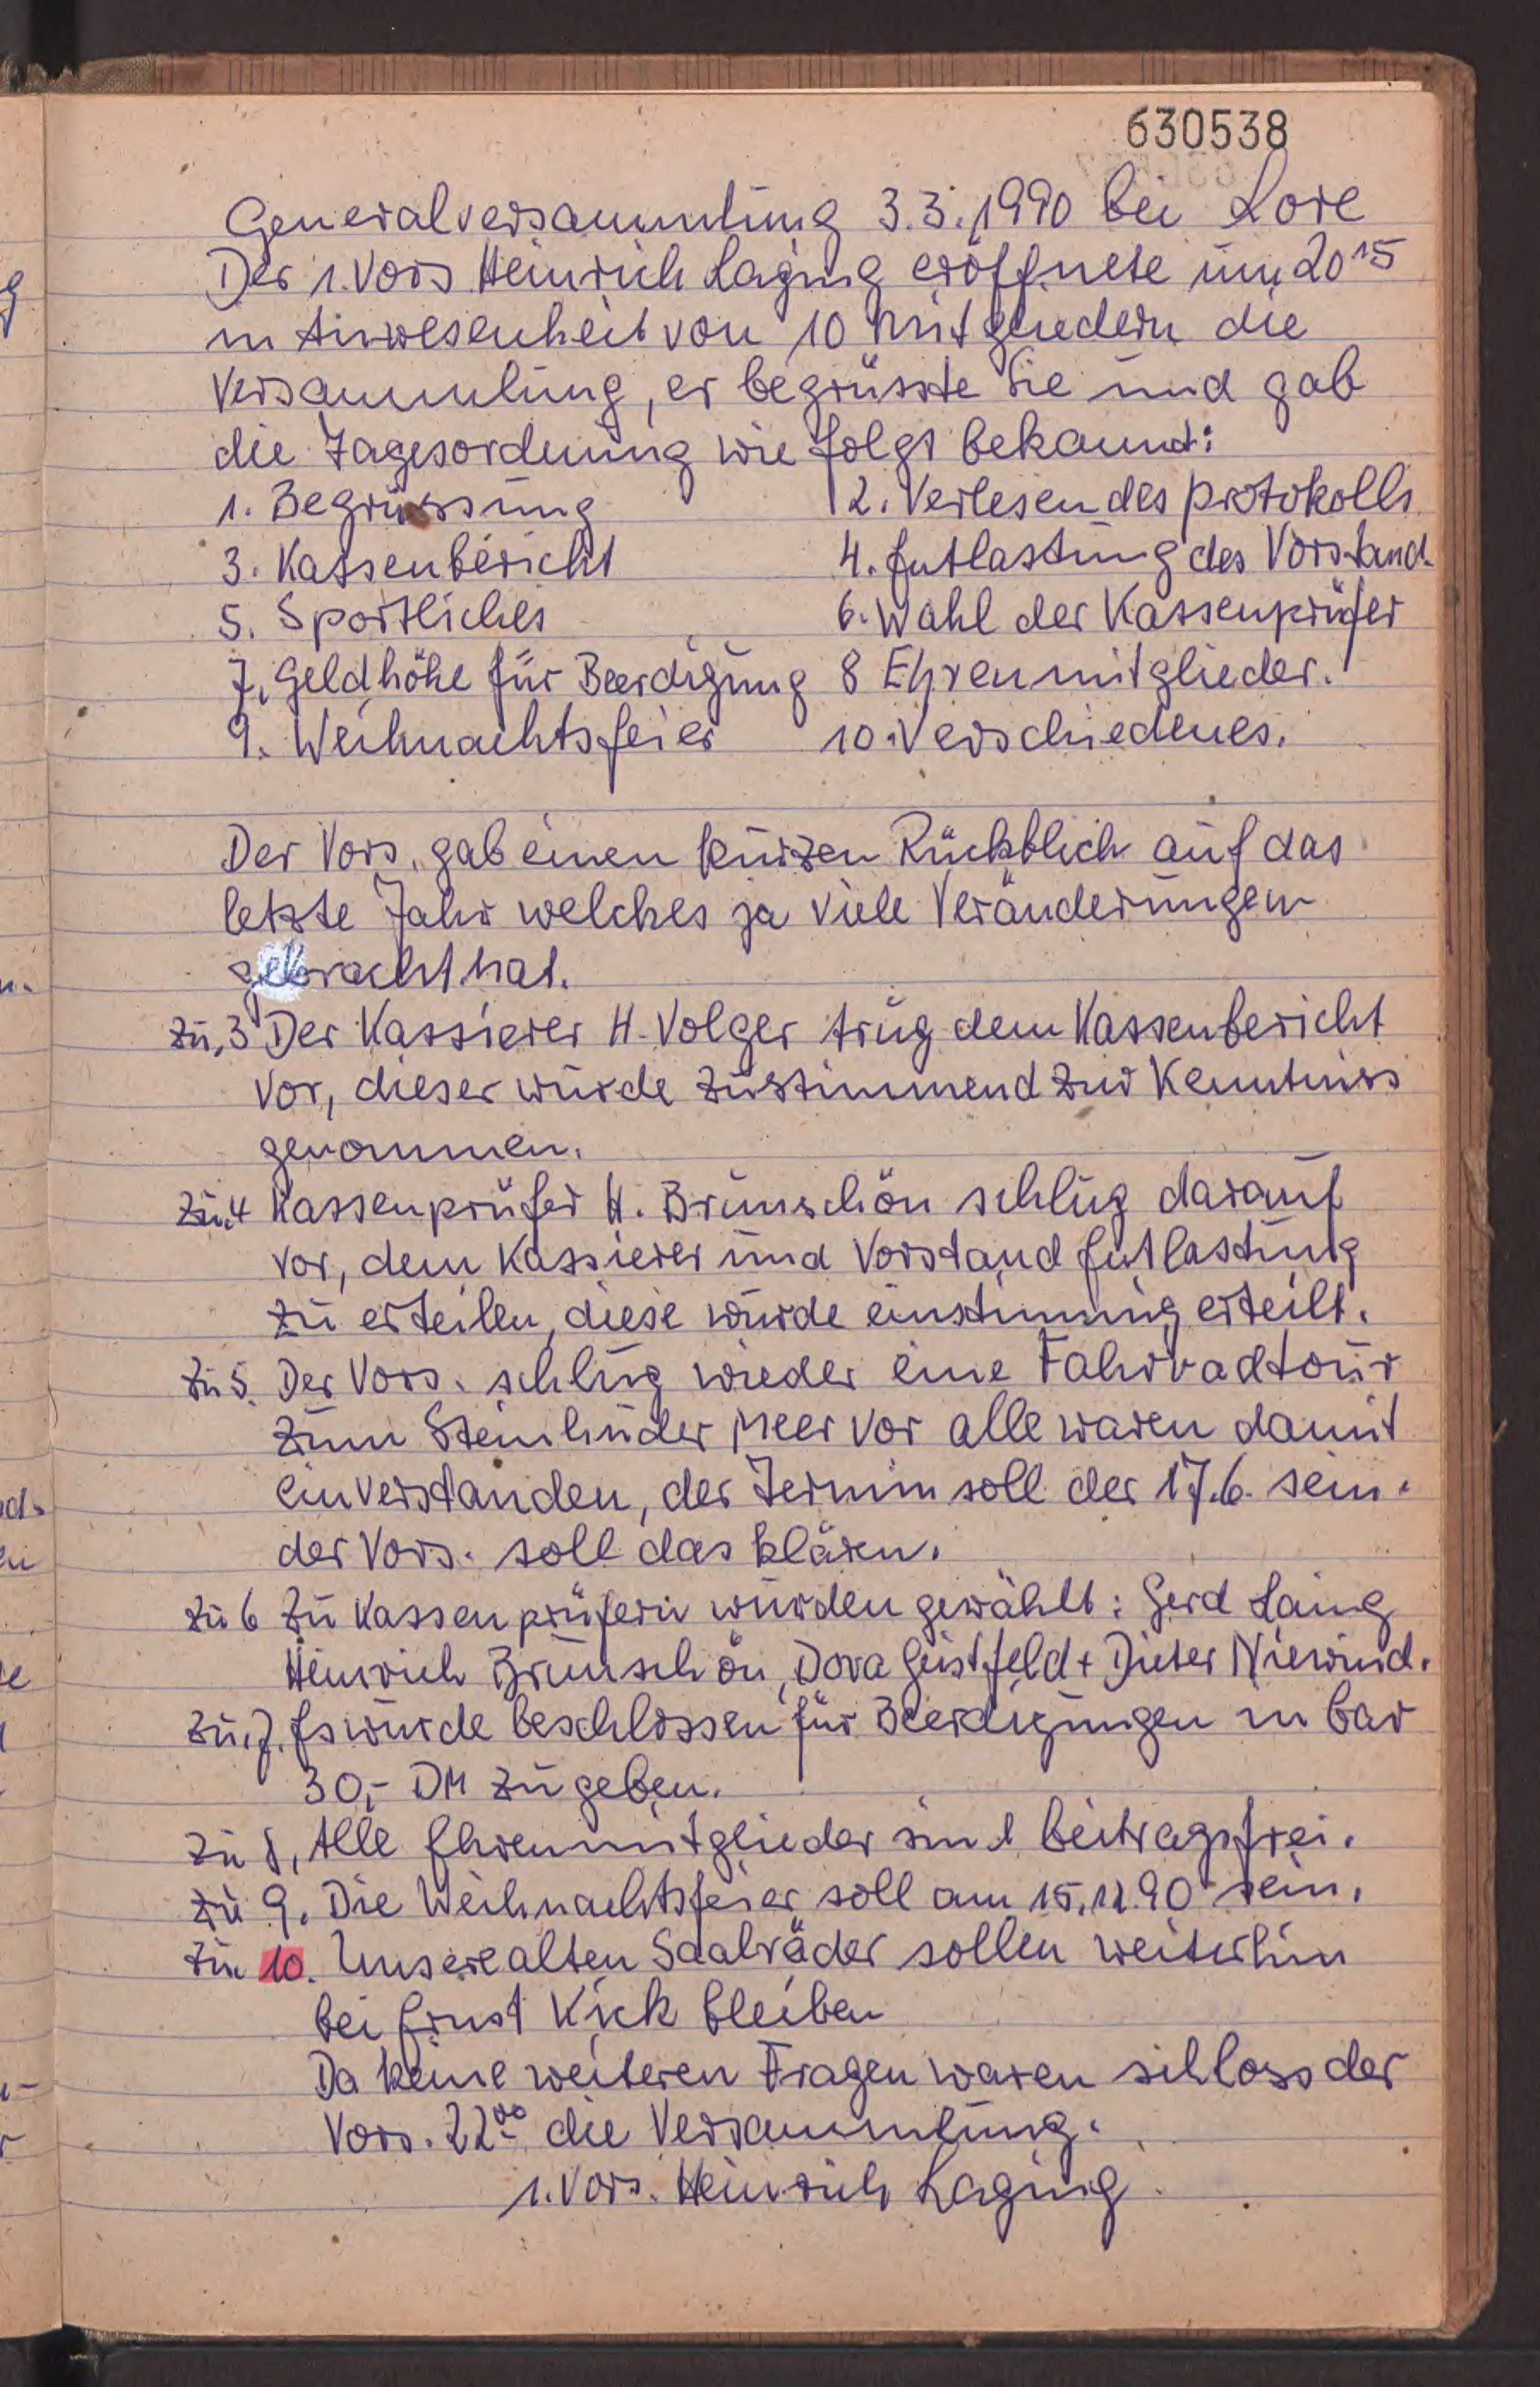 630538
Generalversammlung 3.3.1990 bei Lore
Der 1. Vors Heinrich Laging eröffnete um 20 15
in Anwesenheit von 10 Mitgliedern die
Versammlung, er begrüsste Sie und gab
die Tagesordnung wie folgt bekannt:
1. Begrüssung 2. Verlesen des Protokolls
3. Kassenbericht 4. Entlastung des Vorstand.
5. Sportliches 6. Wahl der Kassenprüfer
7. Geldhöhe für Beerdigung 8 Ehrenmitglieder.
9. Weihnachtsfeier 10. Verschiedenes.
Der Vors. gab einen kurzen Rückblick auf das
letzte Jahr welches ja viele Veränderungen
gebracht hat.
zu, 3 Der Kassierer H. Volger trug dem Kassenbericht
vor, dieser wurde zustimmend zur Kenntniss
genommen.
zu. 4 Kassenprüfer H. Brunschön schlug darauf
vor, dem Kassierer und Vorstand Entlastung
zu erteilen, diese wurde einstimmig erteilt.
zu 5. Der Vors. schlug wieder eine Fahrradtour
zum Steinhuder Meer vor alle waren damit
einverstanden, der Termin soll der 17.6. sein.
der Vors. soll das klären.
zu 6 Zu Kassenprüfern wurden gewählt: Gerd Laing
Heinrich Brunschön, Dora Gustfeld + Dieter Niewind.
zu. 7. Es wurde beschlossen für Beerdigungen in bar
30,- DM zu geben.
zu 8, Alle Ehrenmitglieder sind beitragsfrei.
zu 9. Die Weihnachtsfeier soll am 15.12.90 sein.
zu 10. Unsere alten Saalräder sollen weiterhin
bei Ernst Kick bleiben
Da keine weiteren Fragen waren schloss der
Vors. 22 00 die Versammlung.
1. Vors. Heinrich Laging